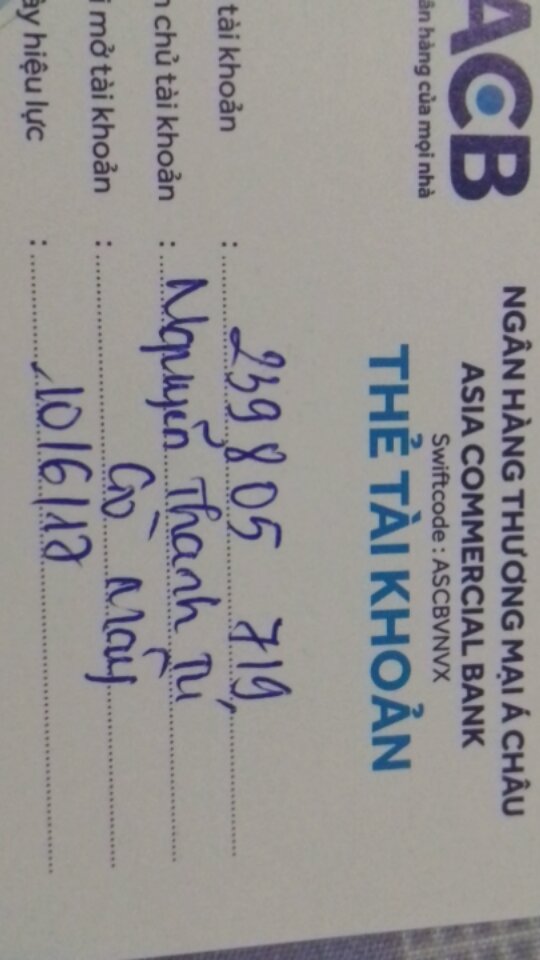 ACB
ân hàng của mọi nhà
NGÂN HÀNG THƯƠNG MẠI Á CHÂU
ASIA COMMERCIAL BANK
Swiftcode : ASCBVNVX
THẺ TÀI KHOẢN
tài khoản : 239 805 719
chủ tài khoản : Nguyễn Thanh Tú
mở tài khoản : Gò Mây
ày hiệu lực : 10/6/17